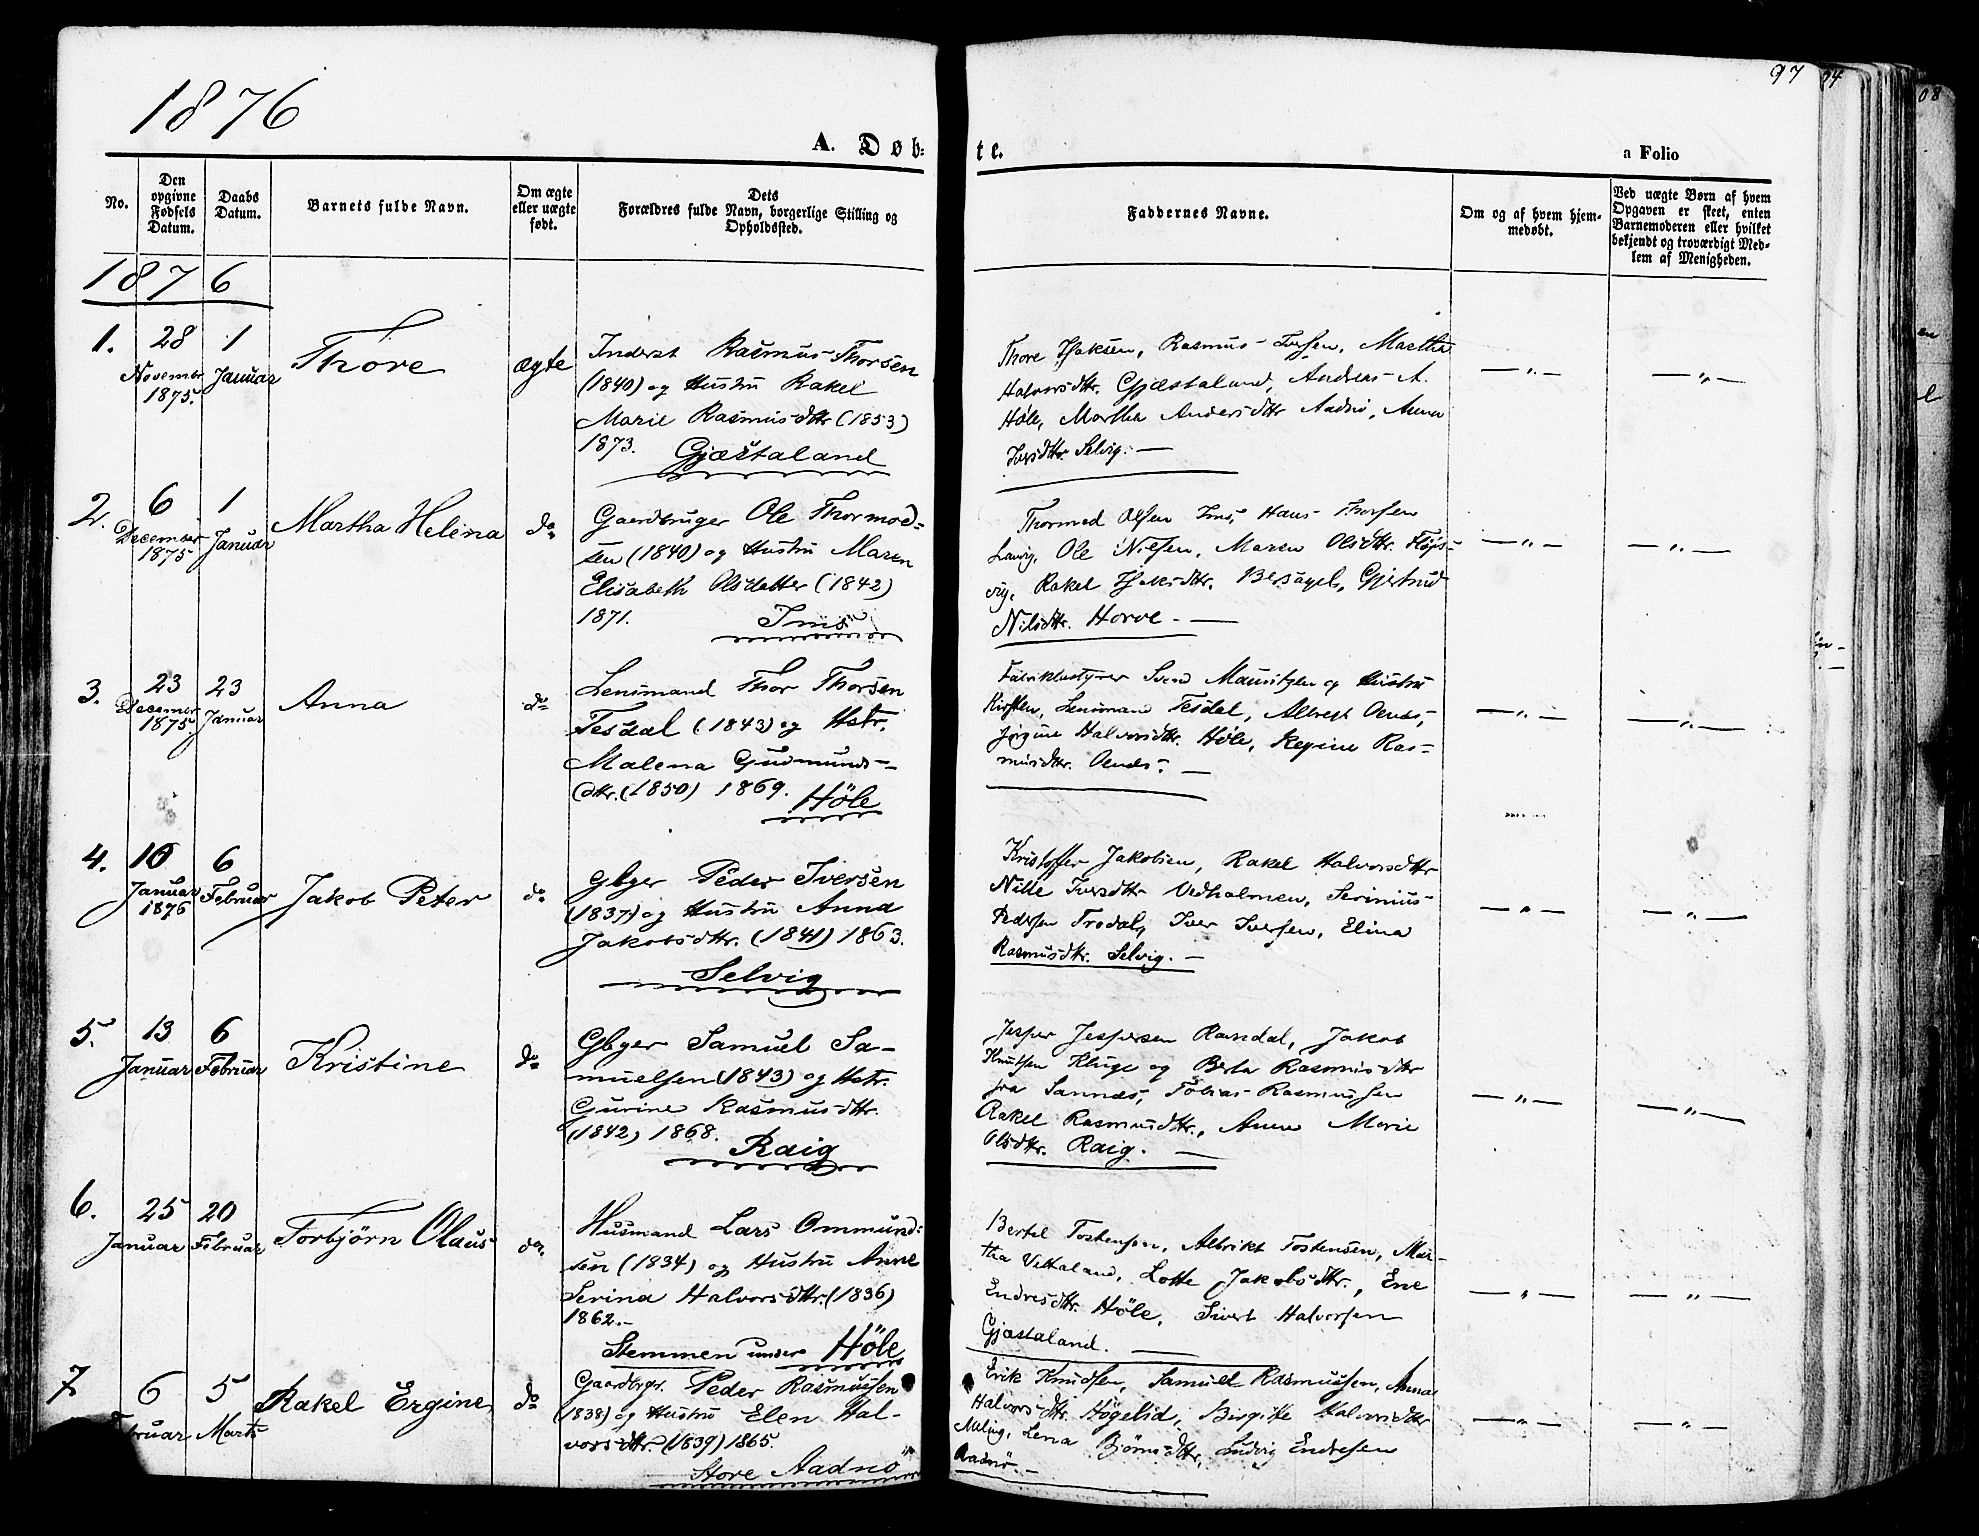 1876
97
94
08
A. Døb-
te.
a Folio
No.
Den opgivne Fødsels Datum.
Daabs Datum.
Barnets fulde Navn.
Om ægte eller uægte født.
Dets Forældres fulde Navn, borgerlige Stilling og Opholdssted.
Faddernes Navne.
Om og af hvem hjem-
medøbt.
Ved uægte Børn af hvem
Opgaven er skeet, enten
Barnemoderen eller hvilket
bekjendt og troværdigt Med-
lem af Menigheden.
1876
1. 28 November 1875. 1 Januar Thore ægte
Inderst Rasmus Thorsen
(1840) og Hustru Rakel
Marie Rasmusdttr (1853)
1873. Gjæstaland
Thore Isaksen, Rasmus Iversen, Martha
Halvorsdttr. Gjæstaland, Andreas A.
Høle, Martha Andersdttr Aadnø, Anna
Iversdttr. Selvig. —
— „ —
— „ —
2. 6 December 1875 1 Januar Martha Helena do
Gaardbruger Ole Thormod-
sen (1840) og Hustru Maren
Elisabeth Olsdatter (1842)
1871. Ims
Thormod Olsen Ims, Hans Thorsen
Lauvig, Ole Nilsen, Maren Olsdttr. Fløgs-
vig, Rakel Isaksdttr. Bersagel, Gjertrud
Nilsdttr. Horve. —
— „ —
— „ —
3. 23 December 1875. 23 Januar Anna do
Lensmand Thor Thorsen
Tesdal (1843) og Hstr.
Malena Gudmunds-
dttr. (1850) 1869. Høle
Fabrikbestyrer Svend Mauritzen og Hustru
Kirsten, Lensmand Tesdal, Albrekt Oends,
Jørgine Halvorsdttr. Høle, Regine Ras-
musdttr. Oends. —
— „ —
— „ —
4. 10 Januar 1876 6 Februar Jakob Peter do
Gbger Peder Iversen
(1837) og Hustru Anna
Jakobsdttr. (1841) 1863.
Selvig
Kristoffer Jakobsen, Rakel Halvorsdttr
Nille Iversdttr Vedholmen, Serinius
Pedersen Trodal, Iver Iversen, Elina
Rasmusdttr. Selvig. —
— „ —
— „ —
5. 13 Januar 6 Februar Kristine do
Gbger Samuel Sa-
muelsen (1843) og Hstr.
Gurine Rasmusdttr.
(1842) 1868. Raig
Jesper Jespersen Randal, Jakob
Knutsen Kluge og Berta Rasmusdttr
fra Sannæs, Tobias Rasmussen
Rakel Rasmusdttr., Anne Marie
Olsdttr. Raig. —
— „ —
— „ —
6. 25 Januar 20 Februar Torbjørn Olaus do.
Husmand Lars Ommund-
sen (1834) og Hustru Anne
Serina Halvorsdttr. (1836)
1862.-
Stemmen under Høle
Bertel Tostensen, Albrikt Tostensen, Mar-
tha Vettaland, Lotte Jakobsdttr., Ene
Endresdttr. Høle, Sivert Halvorsen
Gjæstaland. —
— „ —
— „ —
7 6 Februar 5 Marts Rakel Ergine do
Gaardbgr. Peder Rasmussen
(1838) og Hustru Elen Hal-
vorsdttr. (1839) 1865.
Store Aadnø
Erik Knudsen, Samuel Rasmussen, Anna
Halvorsdttr. Høgelid, Birgitte Halvorsdttr
Meling, Lena Bjørnsdttr, Ludvig Endresen
Aadnø. —
— „ —
— „ —